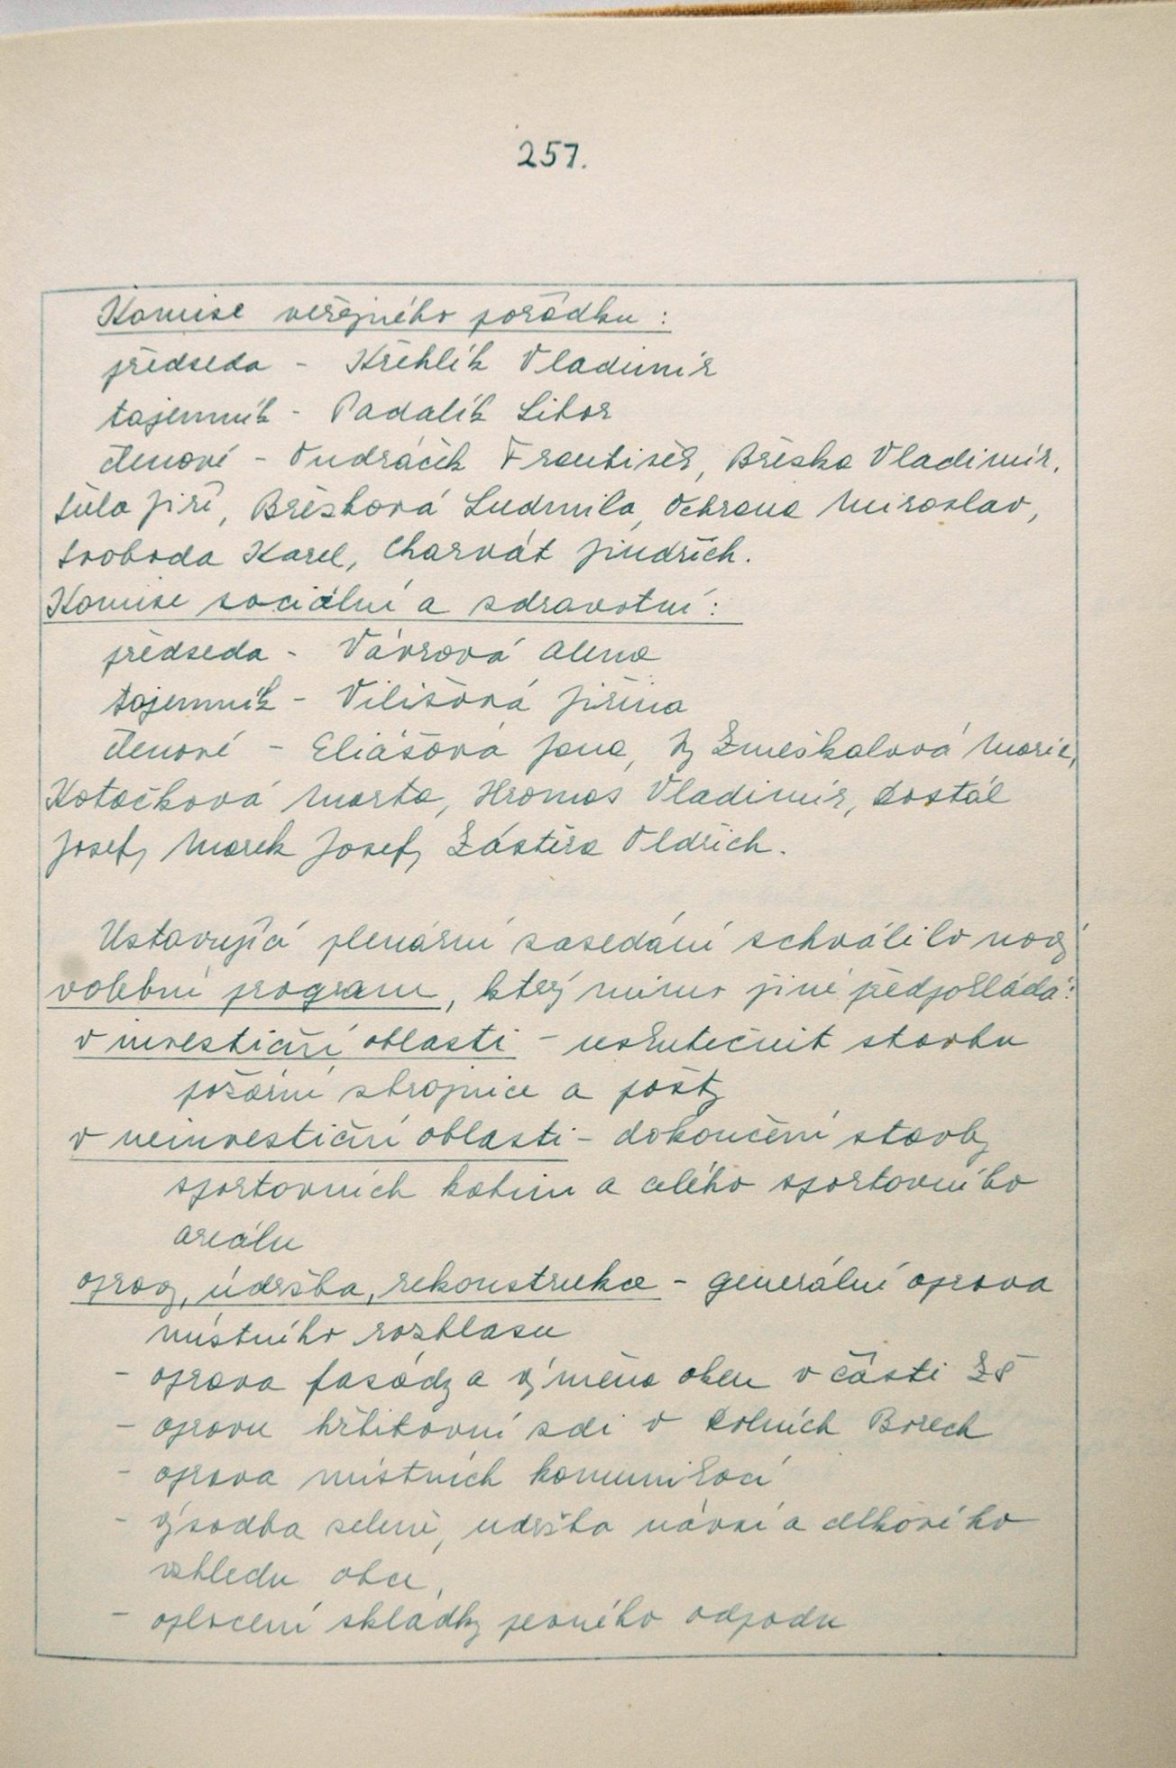 257.
Komise veřejného pořádku :
předseda - Křehlík Vladimír
tajemník - Padalík Libor
členové - Vondráček František, Břeska Vladimír,
Šula Jiří, Břesková Ludmila, Ochrana Miroslav,
Svoboda Karel, Charvát Jindřich.
Komise sociální a zdravotní :
předseda - Vávrová Alena
tajemník - Vilišová Jiřina
členové - Eliášová Jana, Zmeškalová Marie,
Kotačková Marta, Hromas Vladimír, Dostál
Josef, Marek Josef, Zástěra Oldřich.
Ustavující plenární zasedání schválilo nový
volební program, který mimo jiné předpokládá :
v investiční oblasti - uskutečnit stavbu
požární zbrojnice a pošty
v neinvestiční oblasti - dokončení stavby
sportovních kabin a celého sportovního
areálu
opravy, údržba, rekonstrukce - generální oprava
místního rozhlasu
- oprava fasády a výměna oken v části ZŠ
- opravu hřbitovní zdi v Dolních Borech
- oprava místních komunikací
- výsadba zeleně, udržba návsí a celkového
vzhledu obce,
- oplocení skládky pevného odpadu